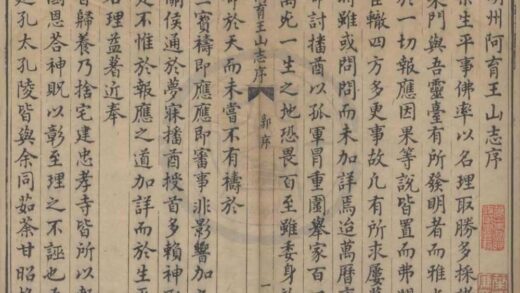 明州阿育王山志序
余生平事佛率以名理取勝多採
東門與吾靈臺有所發明者而雅
於一切報應因果等說皆置而弗
轍四方多更事故凢有所求屢
時雖或問問而未加詳焉迨萬曆
命討播酋以孤軍冒重圍舉家百
萬死一生之地恐畏百至雖委身
育王山志序 郭序 一
即於天而未嘗不有禱於
二寶禱即應應即審事非影響加
關侯通於夢寐播酋授首多賴神
是不惟於報應之道加詳而於生
名理益著近奉
旨歸養乃捨宅建忠孝寺皆所以
國恩答神貺以彰至理之不誣也
孔太孔陵皆與余同茹荼甘昭